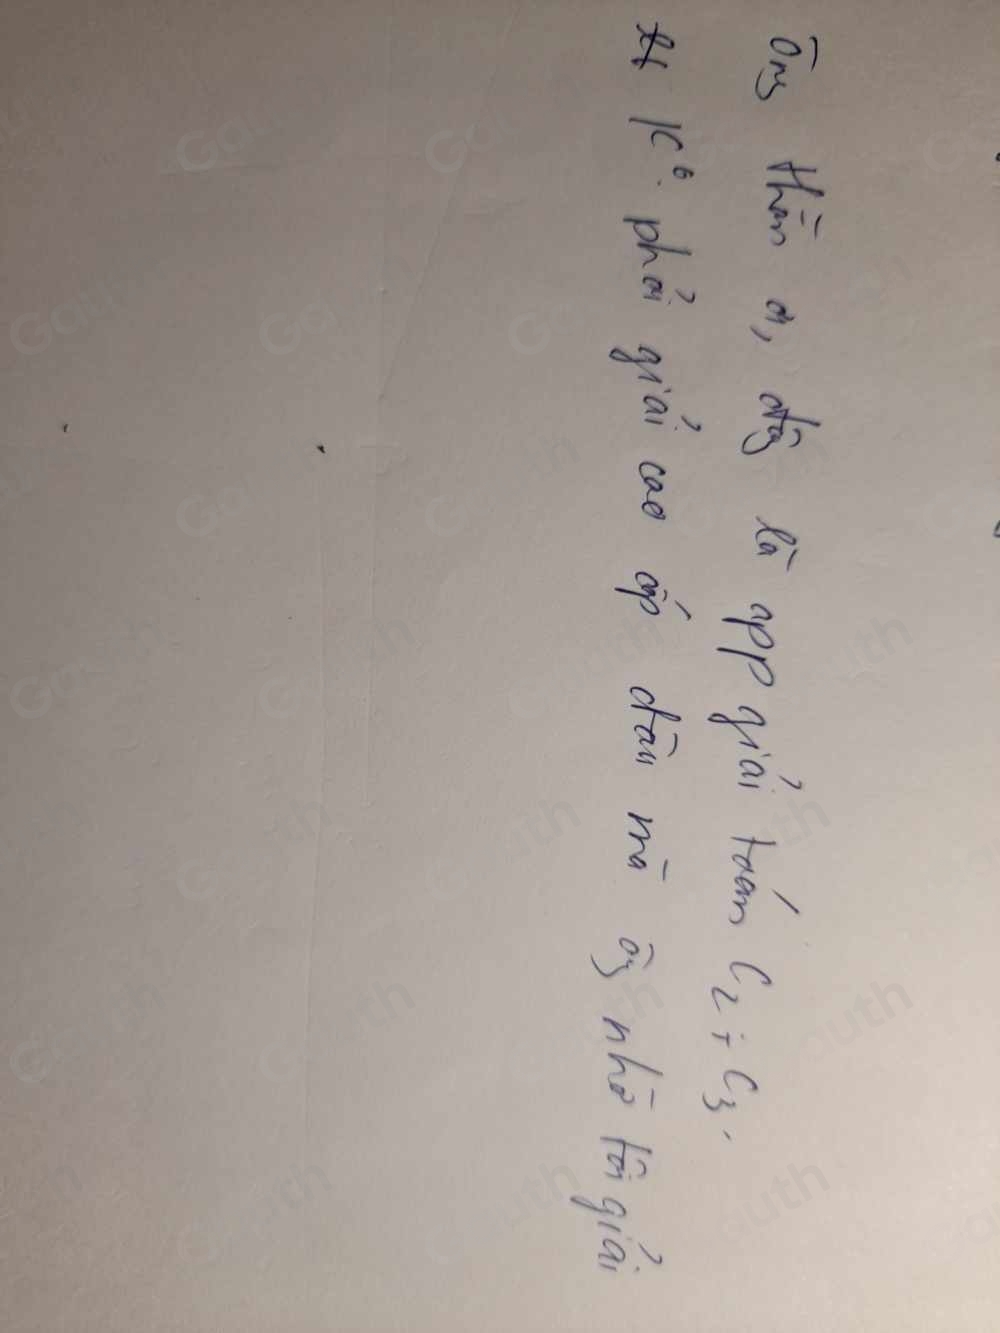 Ông thần ơi, đây là app giải toán C2 + C3.
K0. phải giải cao áp đâu mà ôg nhờ tôi giải